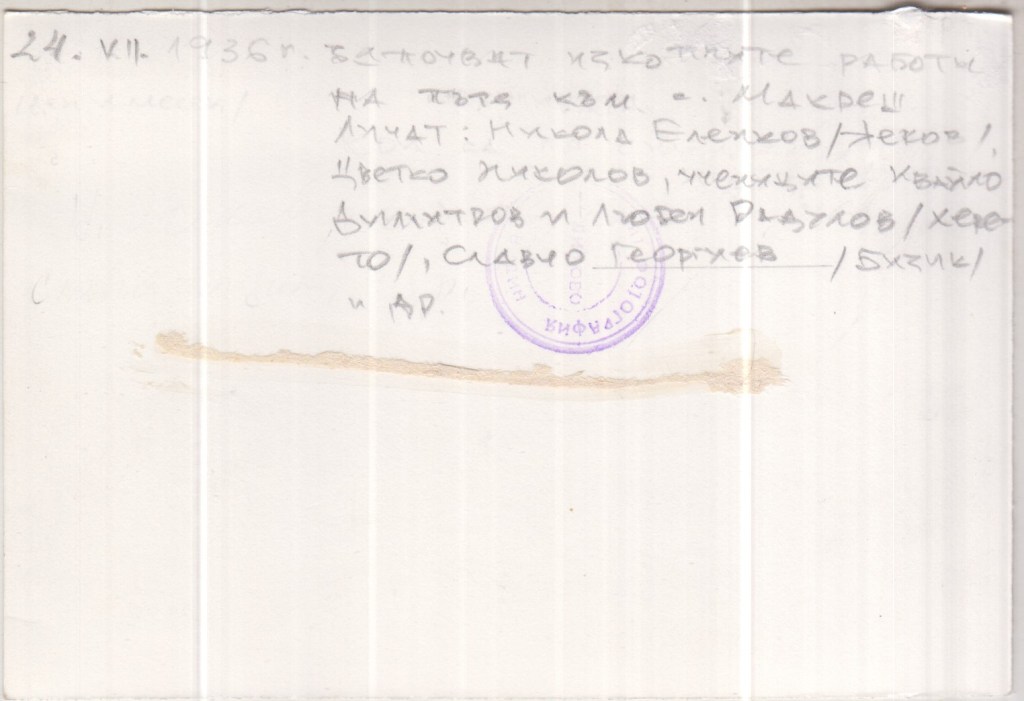 24. VII. 1936 г. Започват изкопните работи
на пътя към с. Макреш
Личат: Никола Еленков/Неков/,
Цветко Николов, учениците Ивайло
Димитров и Любен Радулов/Херо-
то/, Славчо Георгиев /Бизик/
и др.
ФОТОГРАФИЯ